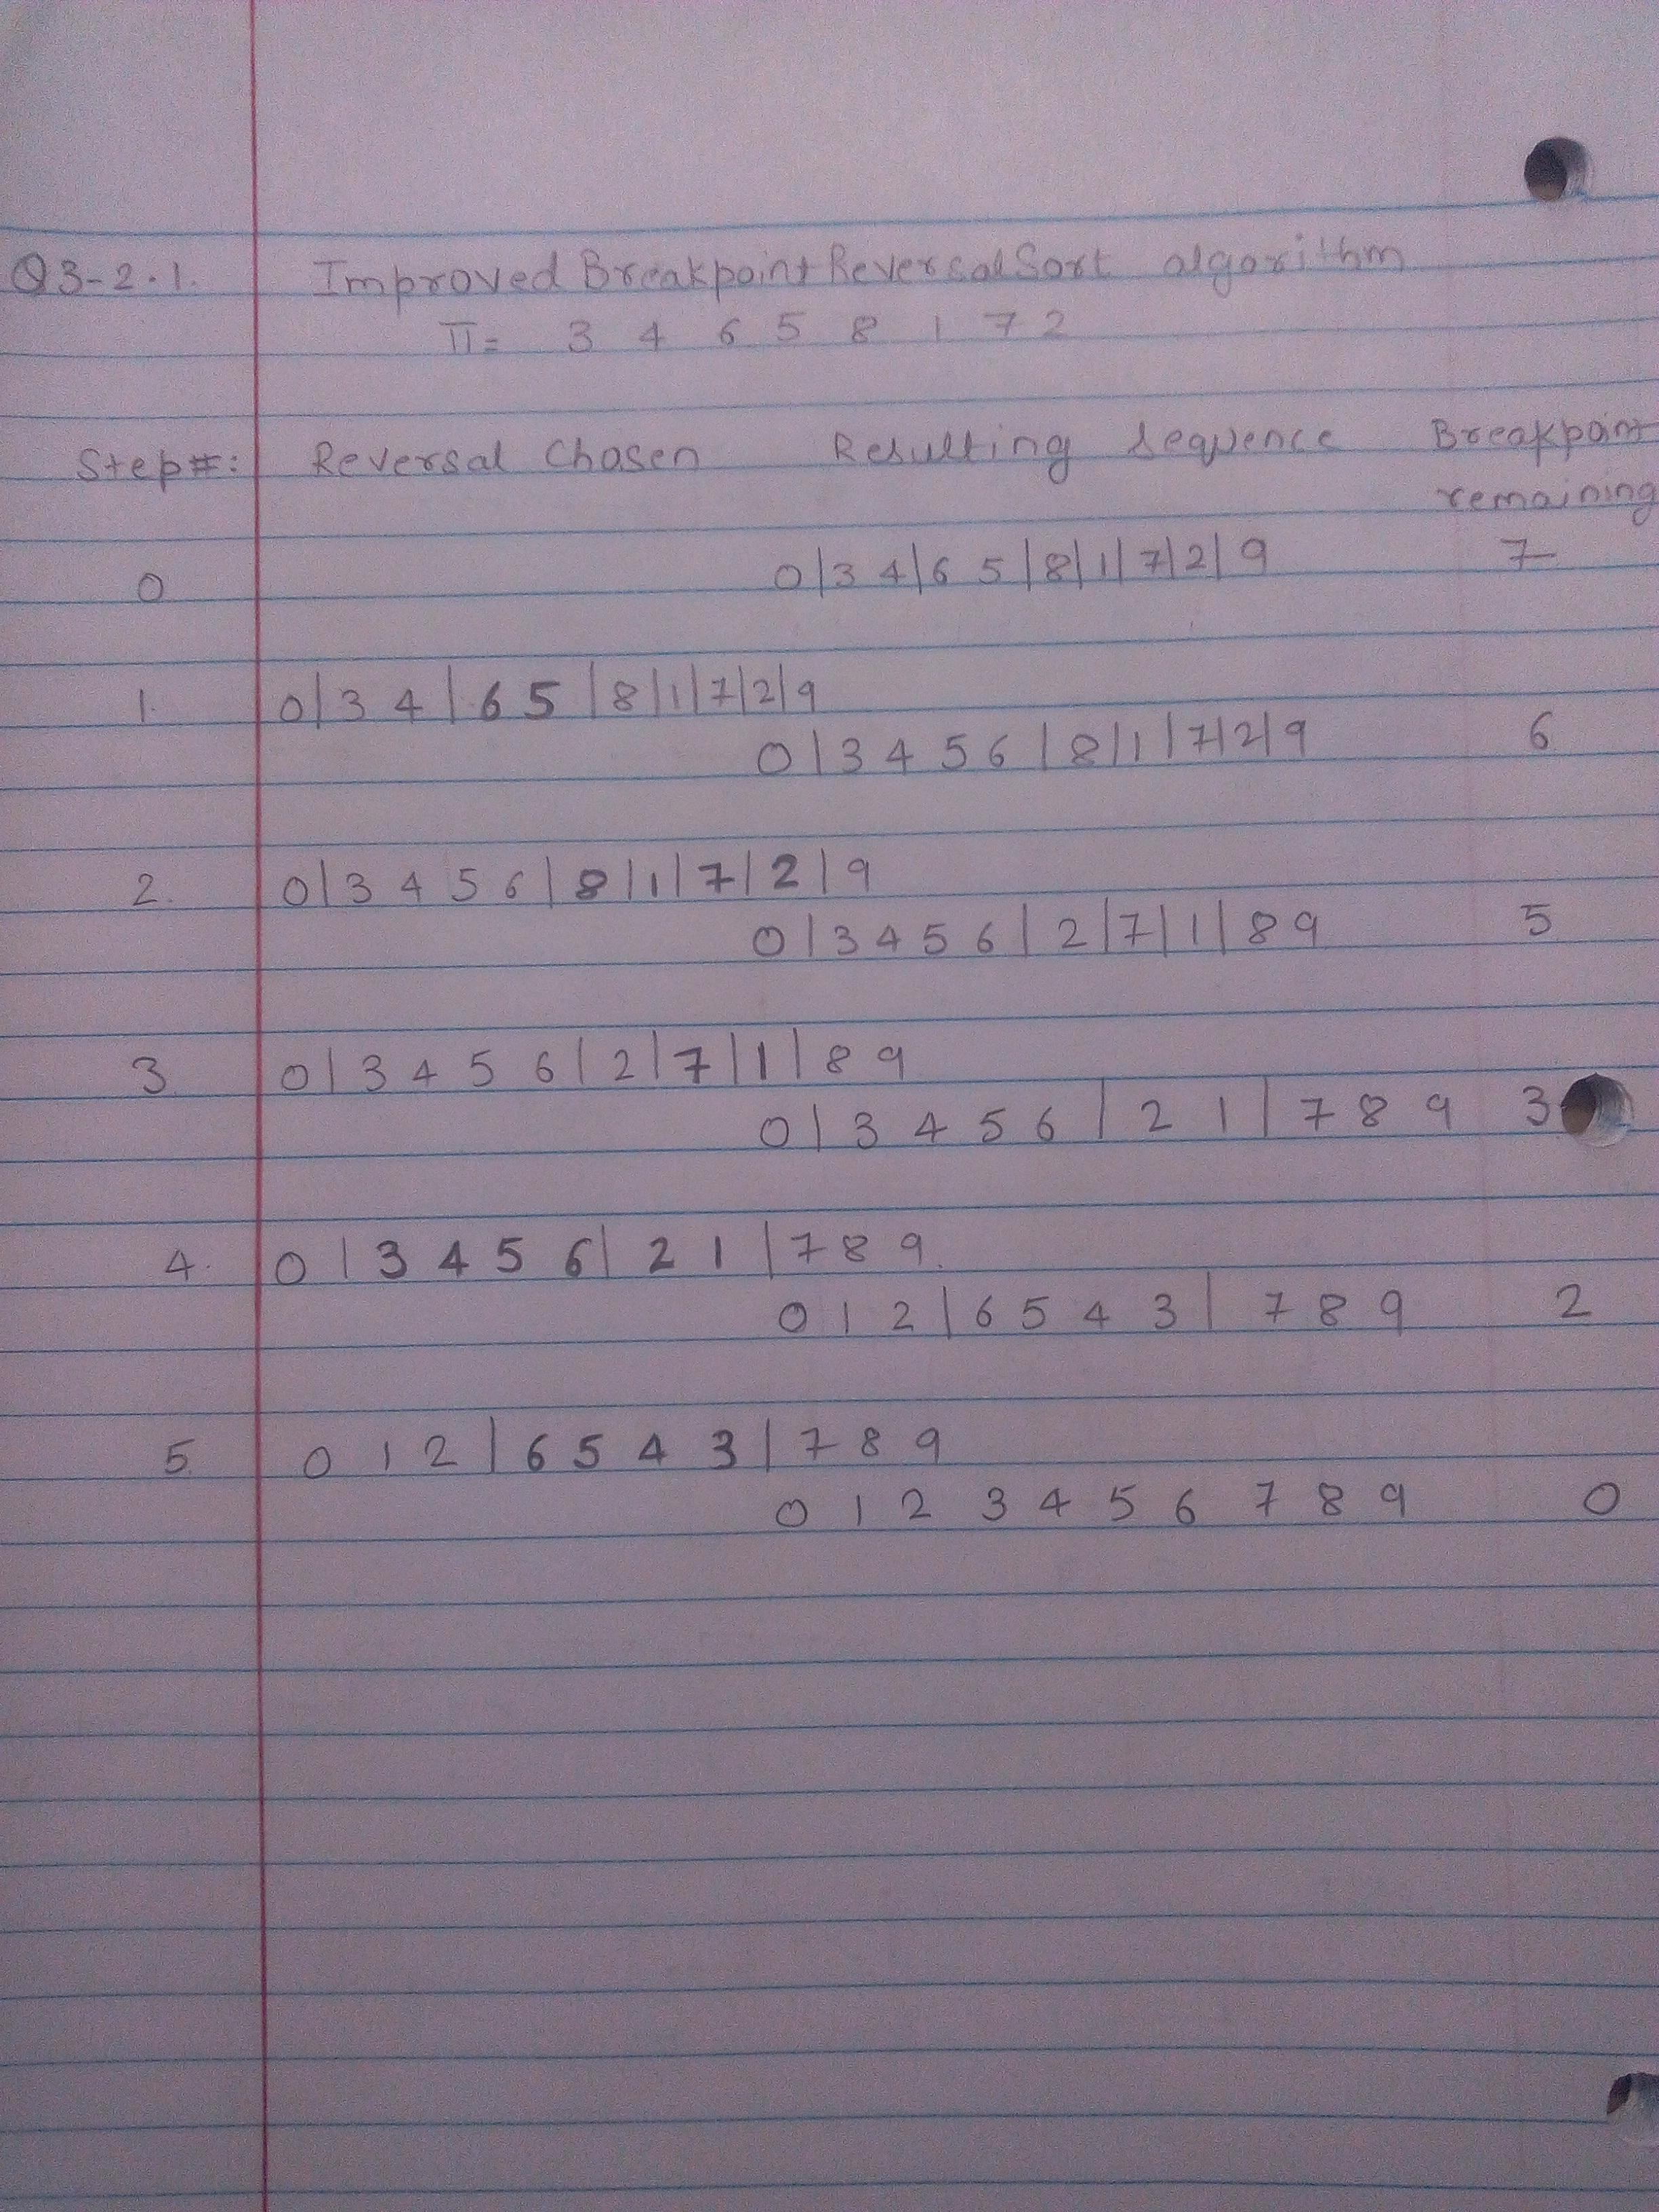 Q3-2.1. Improved BreakpointReversalSort algorithm
π= 3 4 6 5 8 1 7 2
Step#: Reversal Chosen Resulting Sequence Breakpoint
remaining
0 0|3 4|6 5|8|1|7|2|9 7
1. 0|3 4|6 5|8|1|7|2|9
0|3 4 5 6|8|1|7|2|9 6
2. 0|3 4 5 6|8|1|7|2|9
0|3 4 5 6|2|7|1|8 9 5
3 0|3 4 5 6|2|7|1|8 9
0|3 4 5 6|2 1|7 8 9 3
4. 0|3 4 5 6|2 1|7 8 9.
0 1 2|6 5 4 3|7 8 9 2
5. 0 1 2|6 5 4 3|7 8 9
0 1 2 3 4 5 6 7 8 9 0